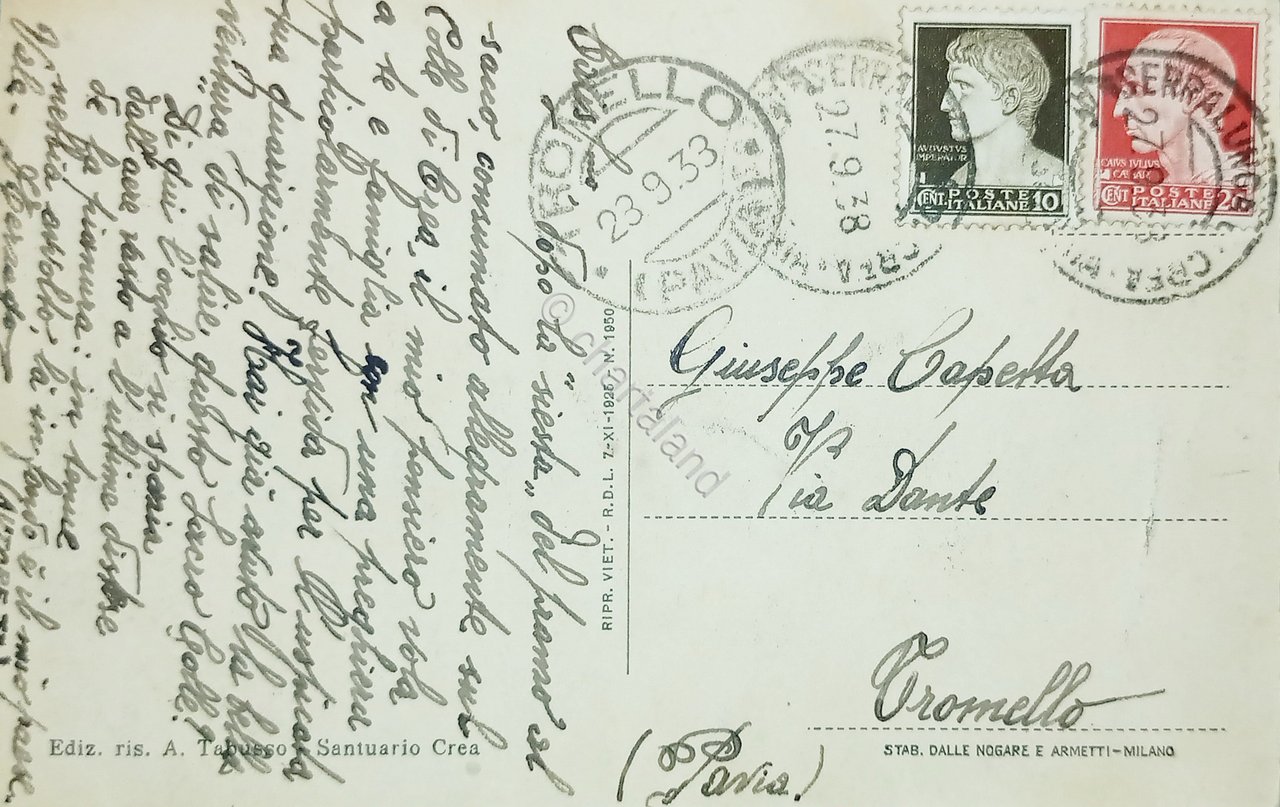 Carlis mio, dopo la "siesta" del pranzo al
sacco, consumato allegramente sul
Colle di Crea il mio pensiero vola
a te e famiglia con una preghiera
particolarmente fervida per l'auspicata
tua guarigione! Hai già avuto la bella
ventura di salire questo sacro Colle?
Di qui l'occhio si spazia
dall'arco vasto a l'ultime distese
de la pianura: in tenue
melodia
Vale
TROMELLO
23.9.33
(PAVIA)
SERRALUNGA
27.9.38
CREA
AVGVSTVS
IMPERATOR
CENT.
POSTE
ITALIANE 10
SERRALUNGA
27.9.38
CREA
CAIVS IVLIVS
CAESAR
CENT
POSTE
ITALIANE 20
RIPR. VIET. - R.D.L. 7-XI-1925 / N. 1950
© chartaland
Giuseppe Capetta
Via Dante
Tromello
(Pavia)
Ediz. ris. A. Tabusso - Santuario Crea
STAB. DALLE NOGARE E ARMETTI-MILANO